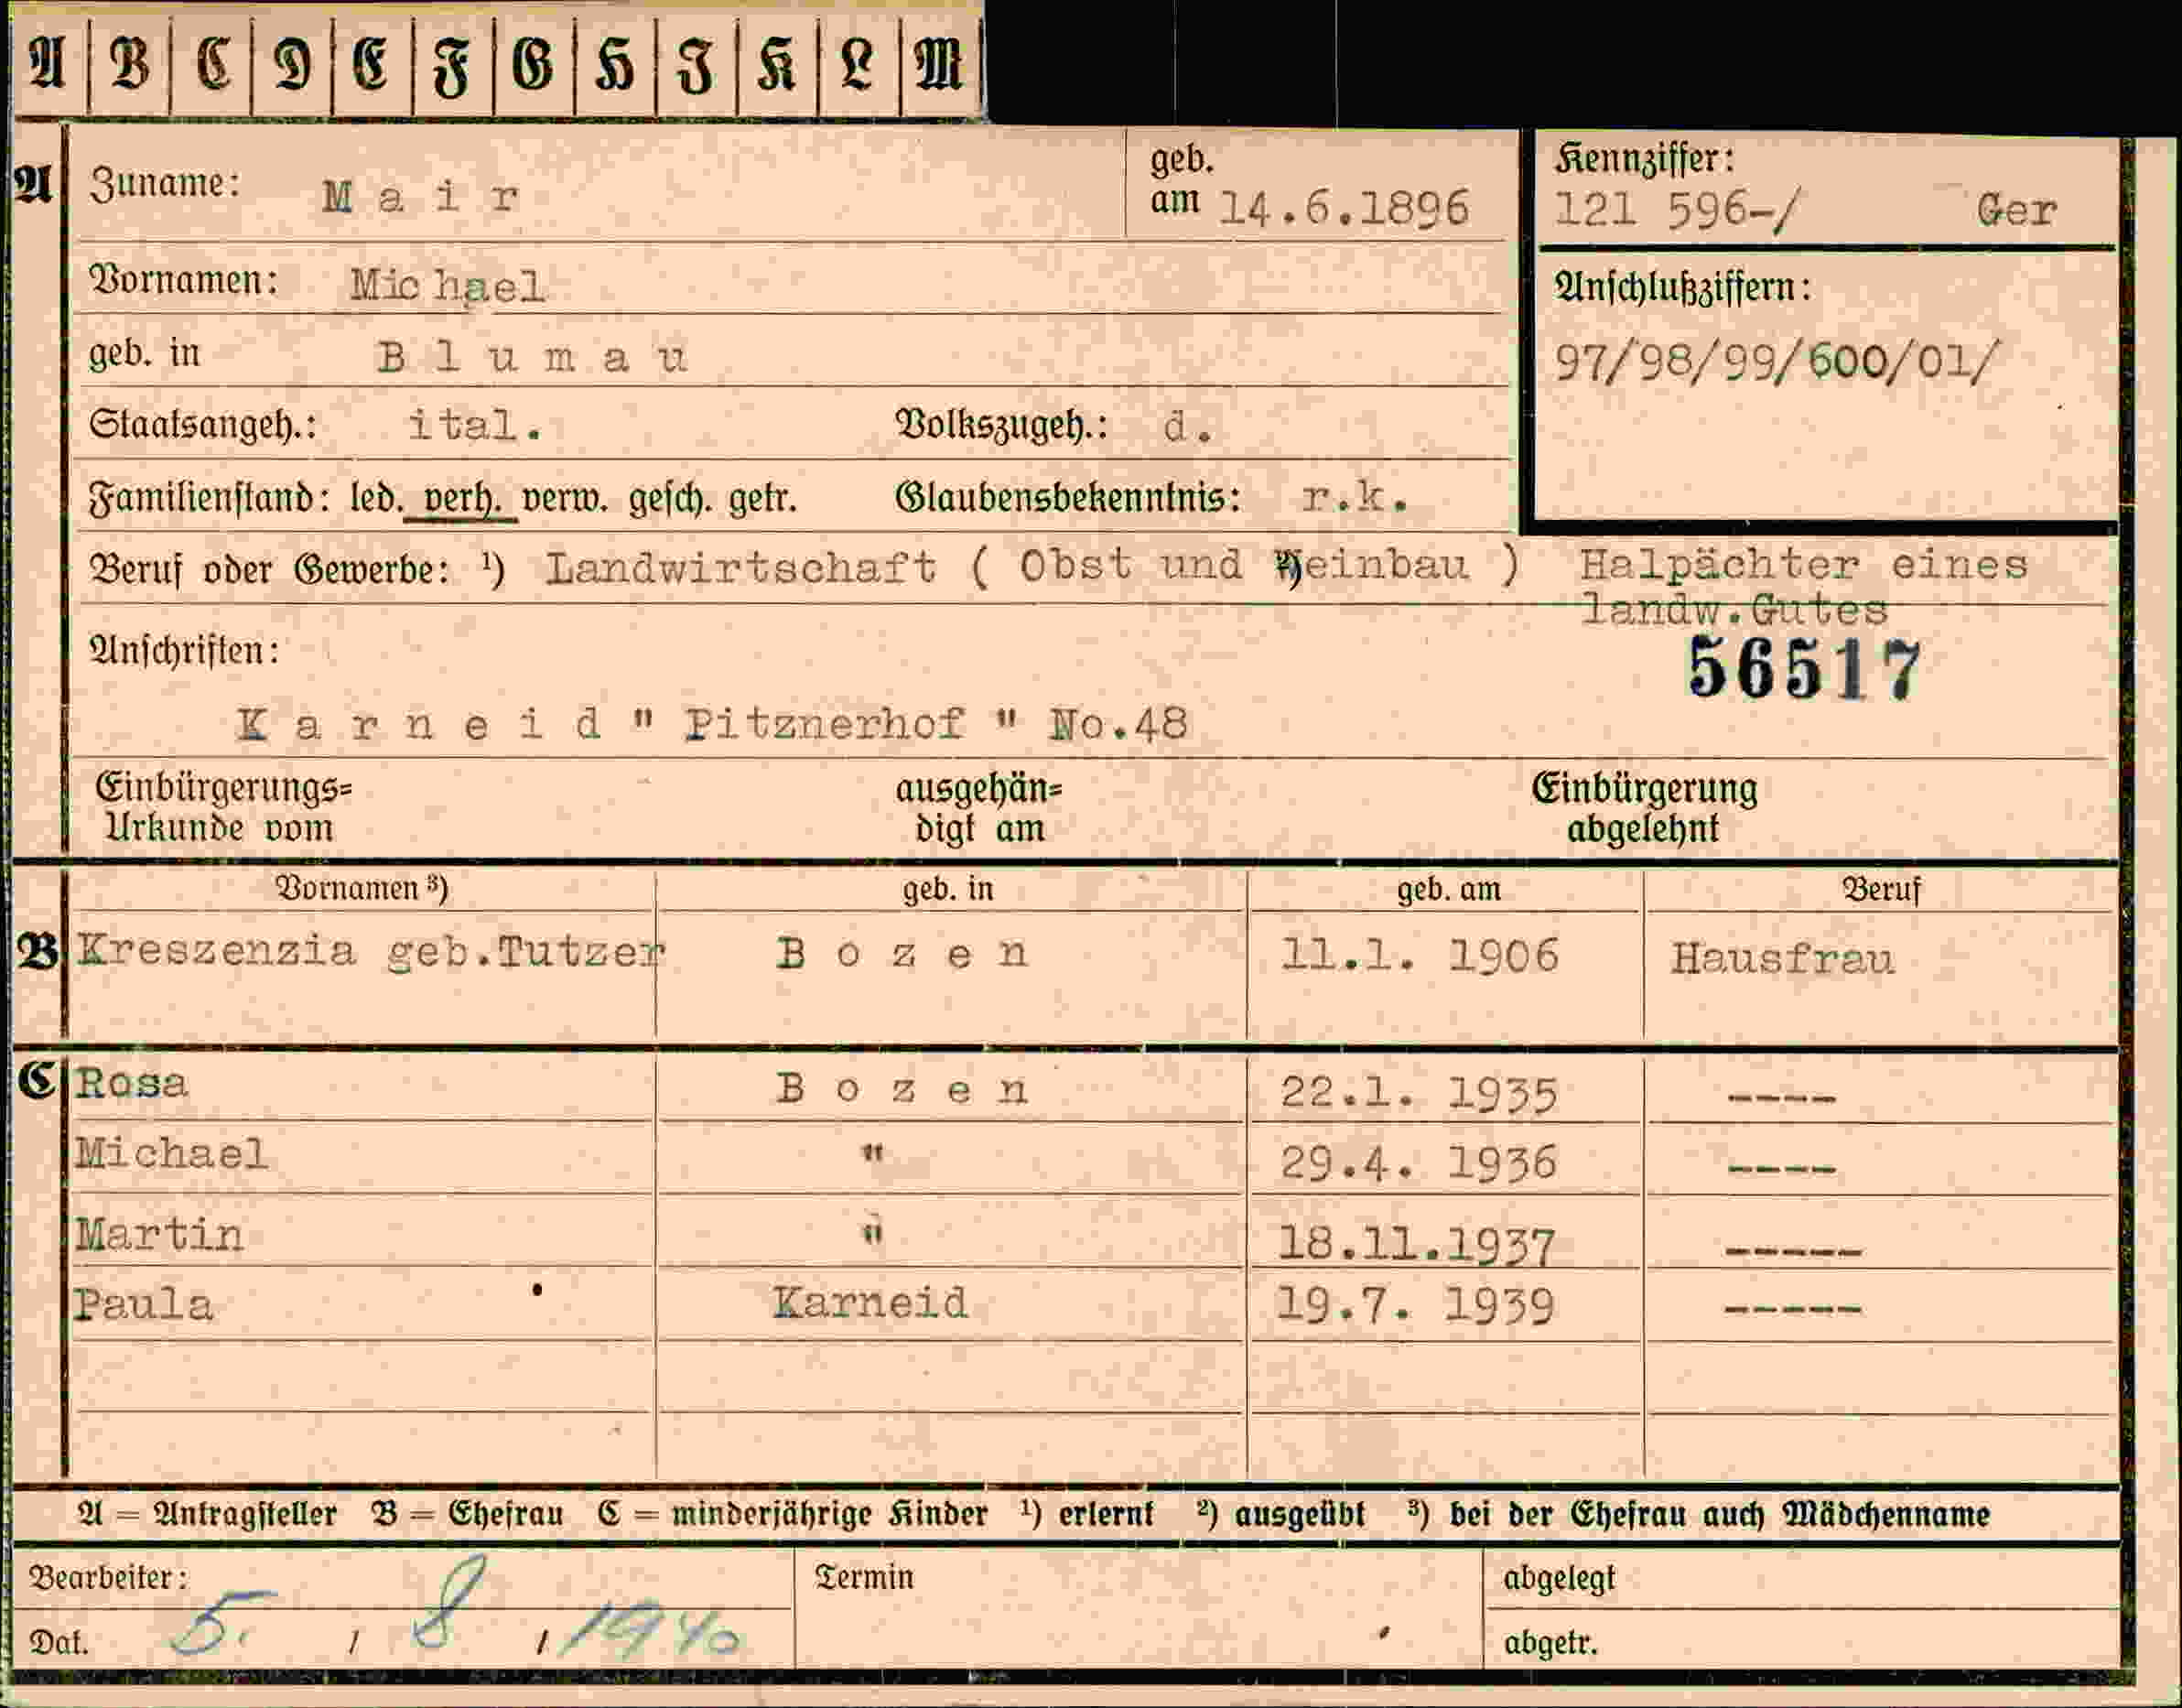 A B C D E F G H J K L M
A Zuname: Mair geb. am 14.6.1896
Kennziffer: 121 596-/ Ger
Vornamen: Michael
Anschlußziffern:
97/98/99/600/01/
geb. in Blumau
Staatsangeh.: ital. Volkszugeh.: d.
Familienstand: led. verh. verw. gesch. getr. Glaubensbekenntnis: r.k.
Beruf oder Gewerbe: ¹) Landwirtschaft ( Obst und Weinbau ) Halpächter eines
landw.Gutes
Anschriften:
56517
Karneid " Pitznerhof " No.48
Einbürgerungs= ausgehän= Einbürgerung
Urkunde vom digt am abgelehnt
Vornamen ³) geb. in geb. am Beruf
B Kreszenzia geb.Tutzer Bozen 11.1. 1906 Hausfrau
C Rosa Bozen 22.1. 1935 ----
Michael " 29.4. 1936 ----
Martin " 18.11.1937 -----
Paula Karneid 19.7. 1939 -----
A = Antragsteller B = Ehefrau C = minderjährige Kinder ¹) erlernt ²) ausgeübt ³) bei der Ehefrau auch Mädchenname
Bearbeiter: Termin abgelegt
Dat. 5. / 8 / 1940 abgetr.